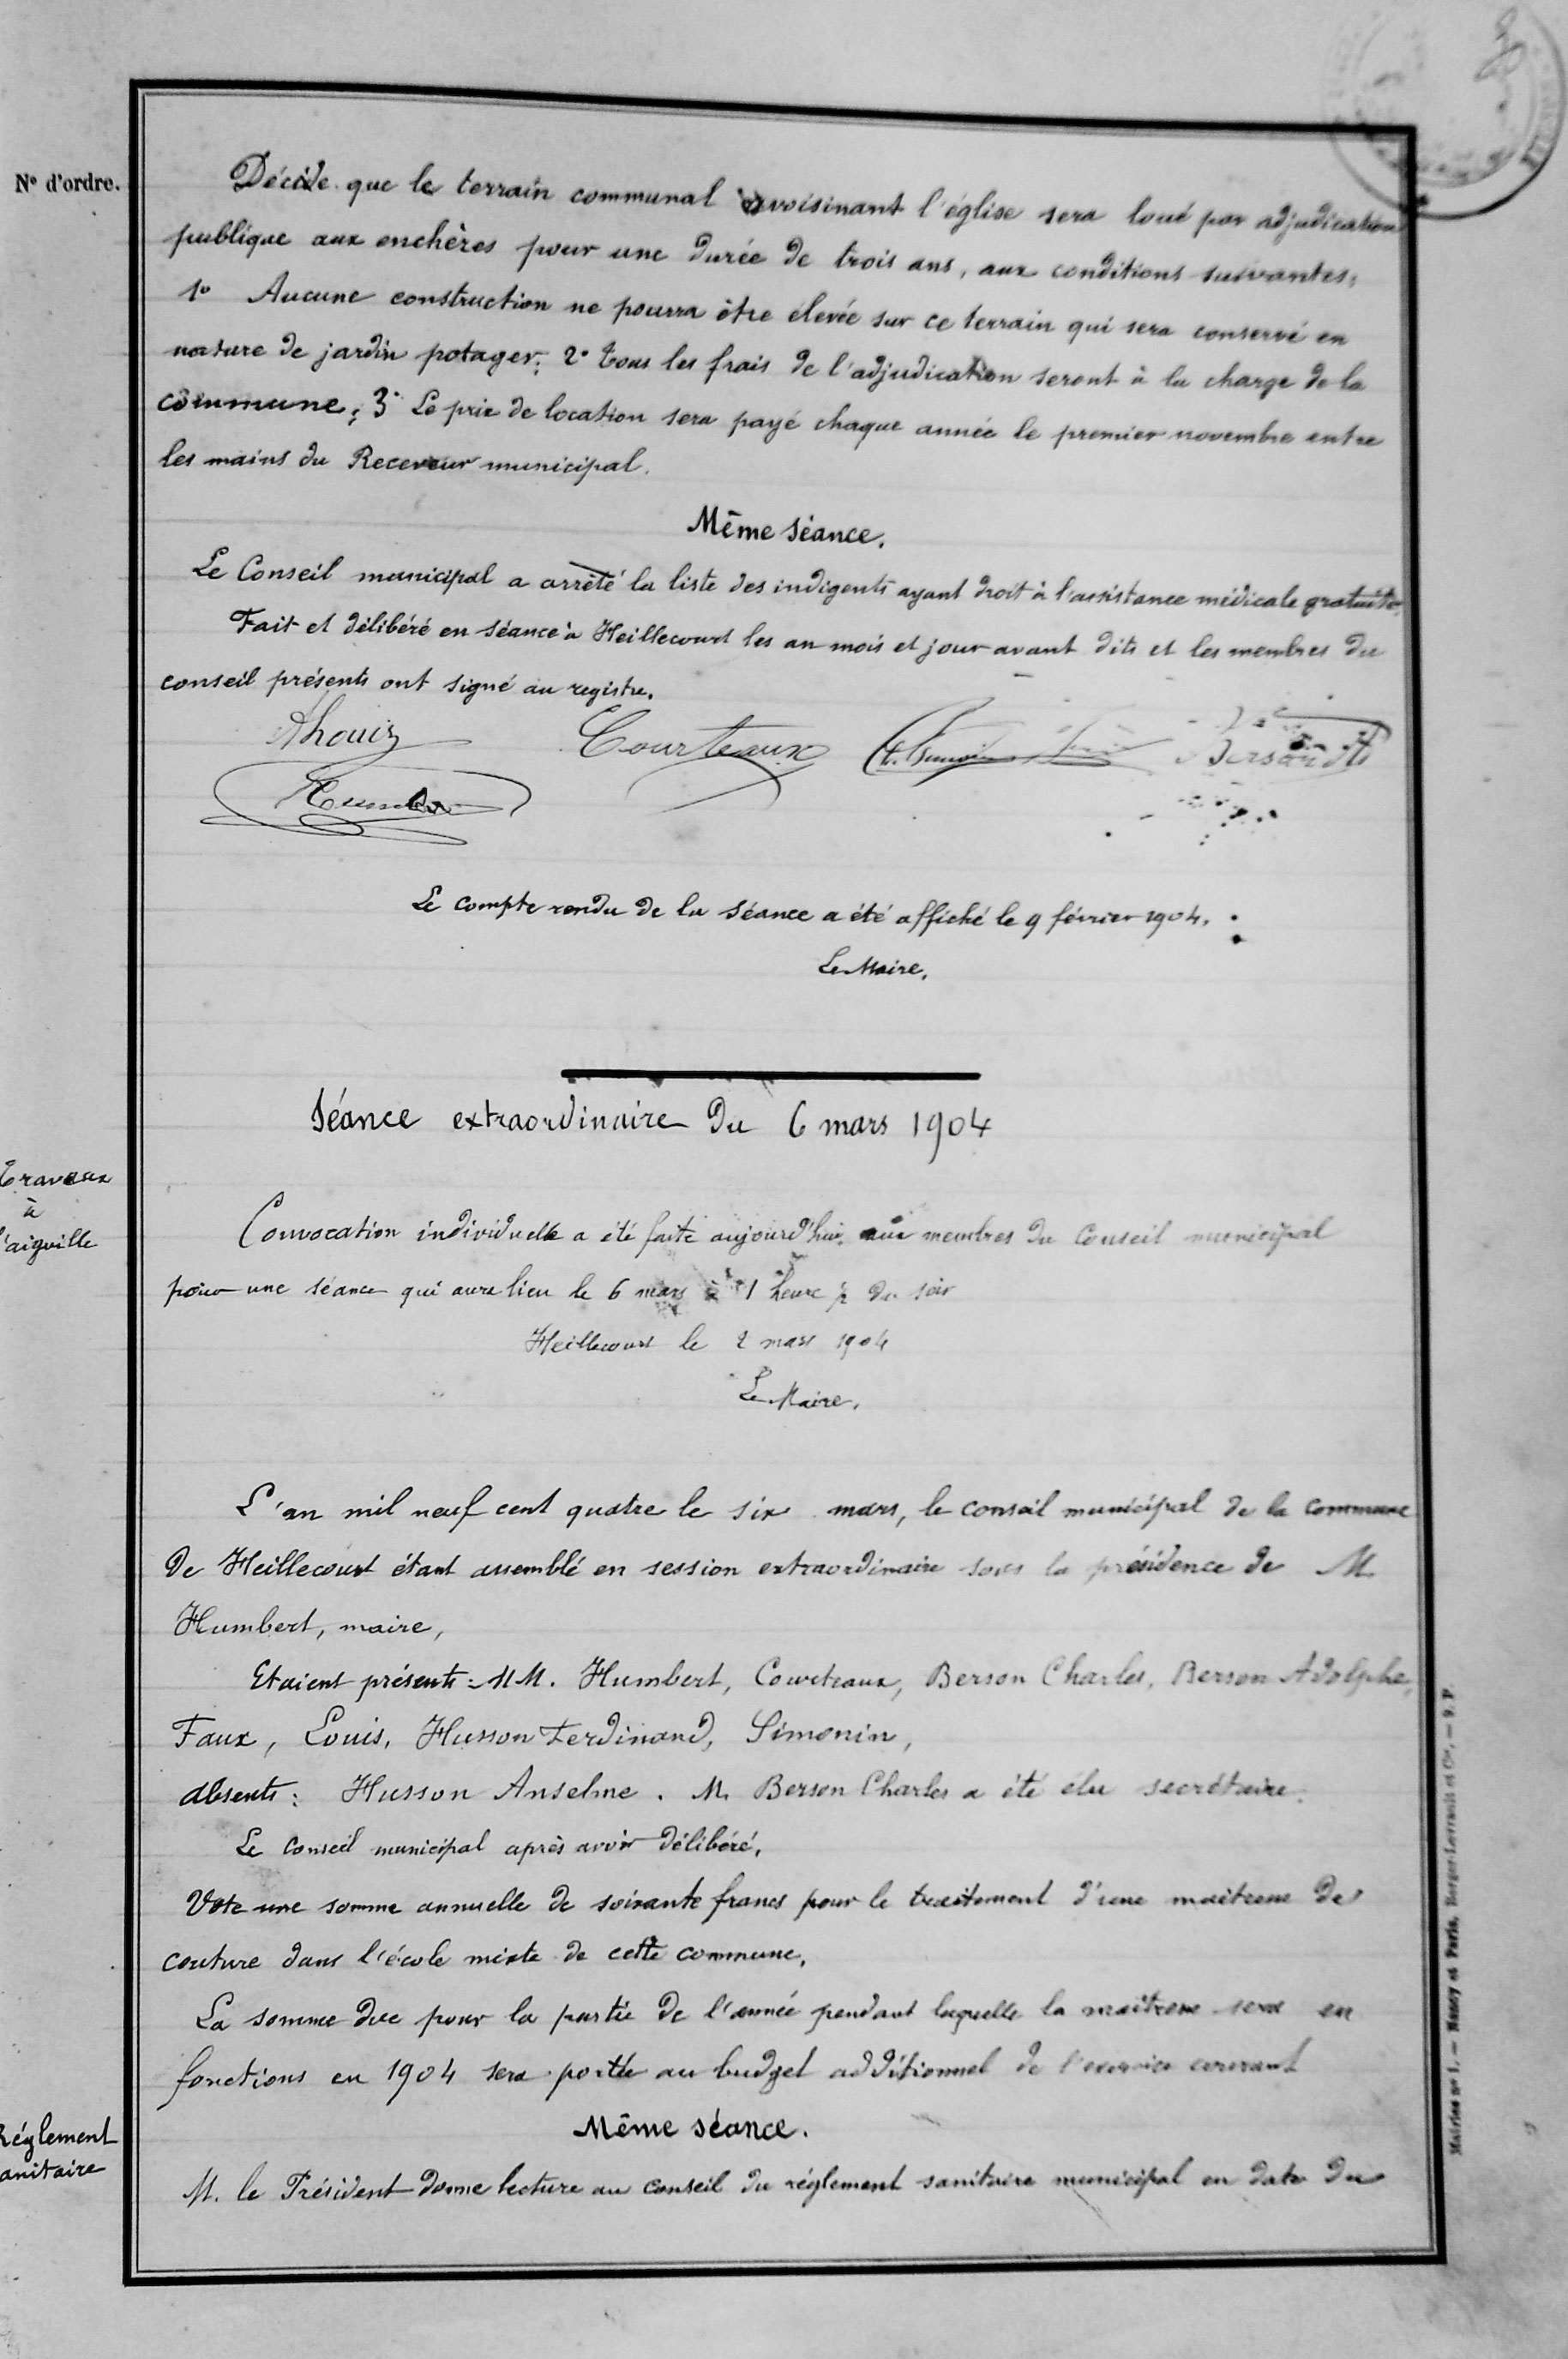 N° d'ordre.
Décide que le terrain communal avoisinant l'église sera loué par adjudication
publique aux enchères pour une durée de trois ans, aux conditions suivantes,
1° Aucune construction ne pourra être élevée sur ce terrain qui sera conservé en
nature de jardin potager; 2° Tous les frais de l'adjudication seront à la charge de la
commune; 3° Le prix de location sera payé chaque année le premier novembre entre
les mains du Receveur municipal.
Même séance.
Le Conseil municipal a arrêté la liste des indigents ayant droit à l'assistance médicale gratuite.
Fait et délibéré en séance à Heillecourt les an mois et jour avant dits et les membres du
conseil présents ont signé au registre.
Courteaux
Le compte rendu de la séance a été affiché le 9 février 1904.
Le Maire,
Séance extraordinaire du 6 mars 1904
Travaux
à
l'aiguille
Convocation individuelle a été faite aujourd'hui aux membres du Conseil municipal
pour une séance qui aura lieu le 6 mars à 1 heure ½ du soir
Heillecourt le 2 mars 1904
Le Maire,
L'an mil neuf cent quatre le six mars, le conseil municipal de la commune
de Heillecourt étant assemblé en session extraordinaire sous la présidence de M.
Humbert, maire,
Etaient présents: MM. Humbert, Courteaux, Berson Charles, Berson Adolphe,
Faux, Louis, Husson Ferdinand, Simonin,
absents: Husson Anselme. M. Berson Charles a été élu secrétaire.
Le Conseil municipal après avoir délibéré,
Vote une somme annuelle de soixante francs pour le traitement d'une maitresse de
couture dans l'école mixte de cette commune.
La somme due pour la partie de l'année pendant laquelle la maitresse sera en
fonctions en 1904 sera portée au budget additionnel de l'exercice courant
Même séance.
Réglement
sanitaire
M. le Président donne lecture au conseil du réglement sanitaire municipal en date du
Mairies n° 1. — Nancy et Paris, Berger-Levrault et Cie. — 9. P.